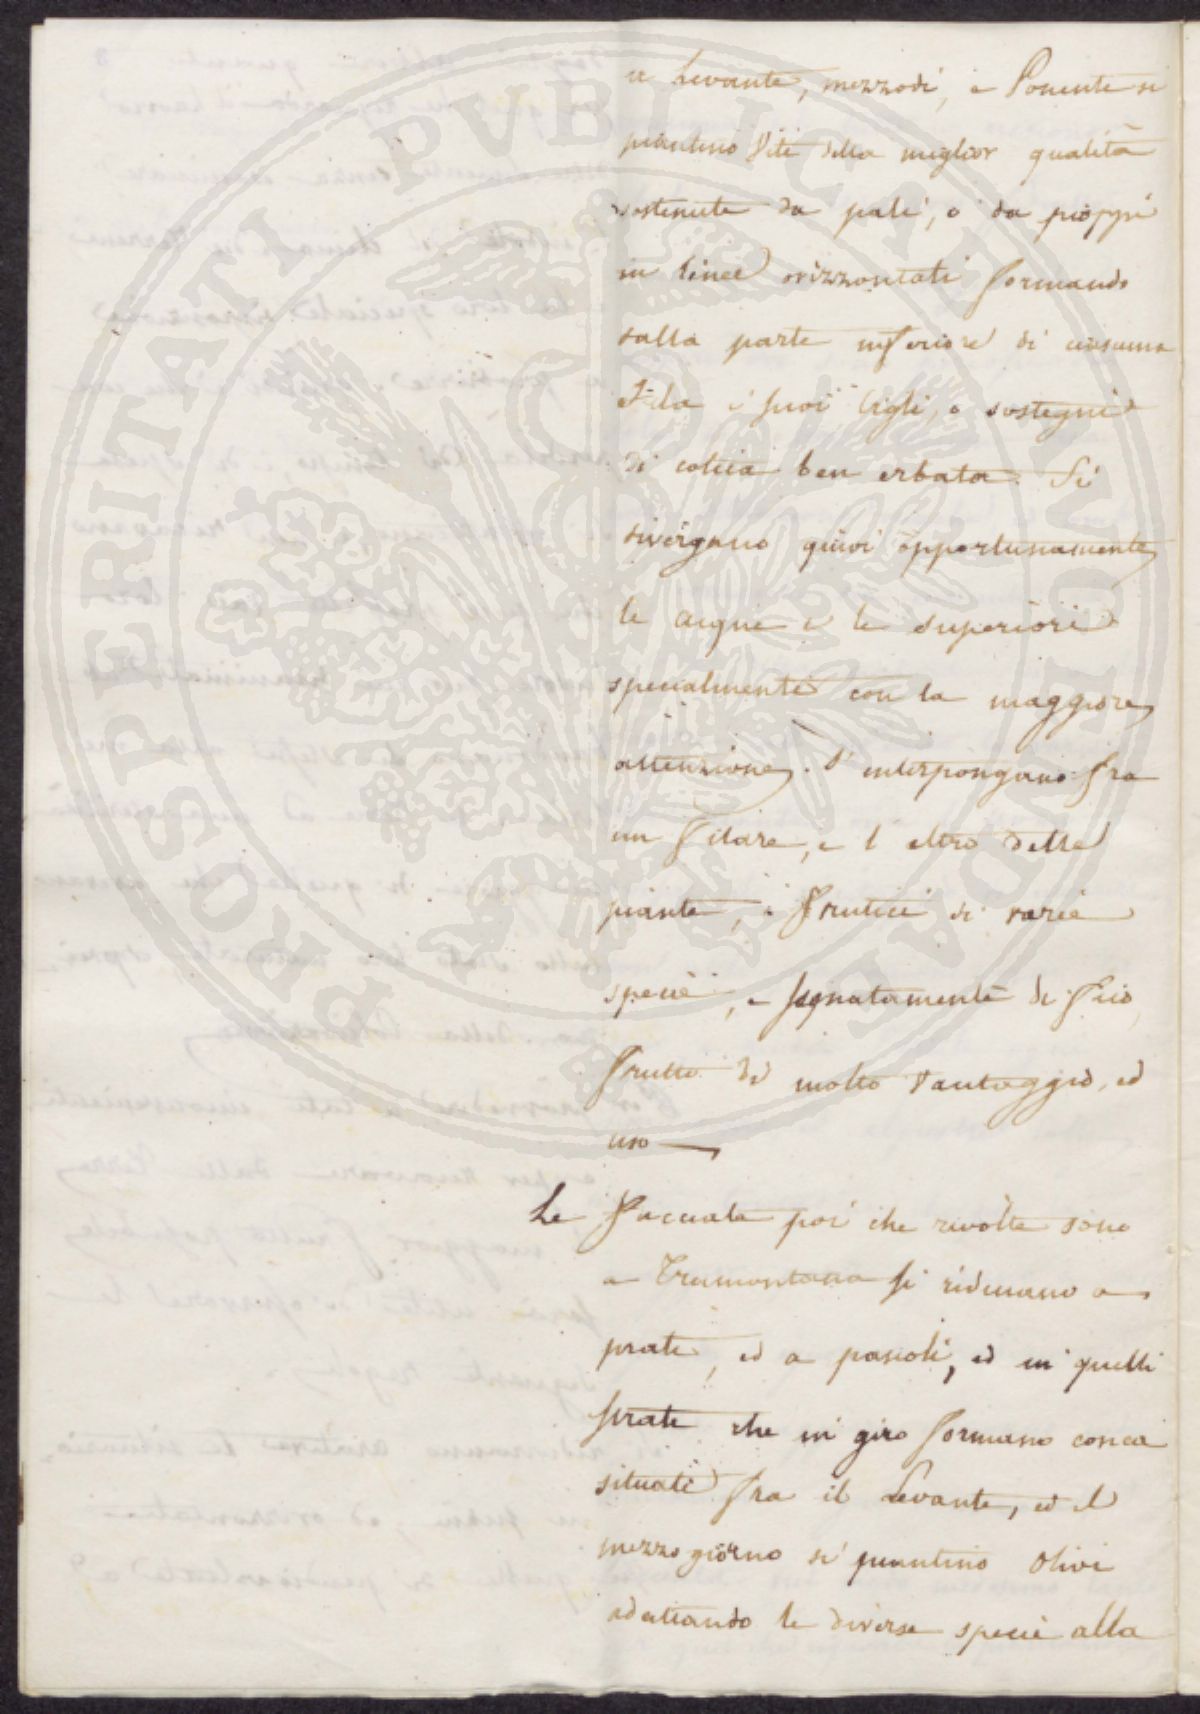 a Levante, mezzodi, e Ponente si
piantino Viti della miglior qualità
sostenute da pali, o da pioppi
in linee orizzontali formando
dalla parte inferiore di ciascuna
Fila i suoi Cigli, o sostegni
di cotica ben erbata. Si
divergano quivi opportunamente
le acque e le superiori
specialmente con la maggiore
attenzione. S' interpongano fra
un filare, e l altro delle
piante, e frutici di varie
specie, e segnatamente di Fico,
frutto di molto vantaggio, ed
uso
Le Facciate poi che rivolte sono
a Tramontana si riducano a
prati, ed a pascoli, ed in quelli
strati che in giro formano conca
situati fra il Levante, ed il
mezzogiorno si piantino Olivi
adattando le diverse specie alla
PROSPERITATI PUBLICAE